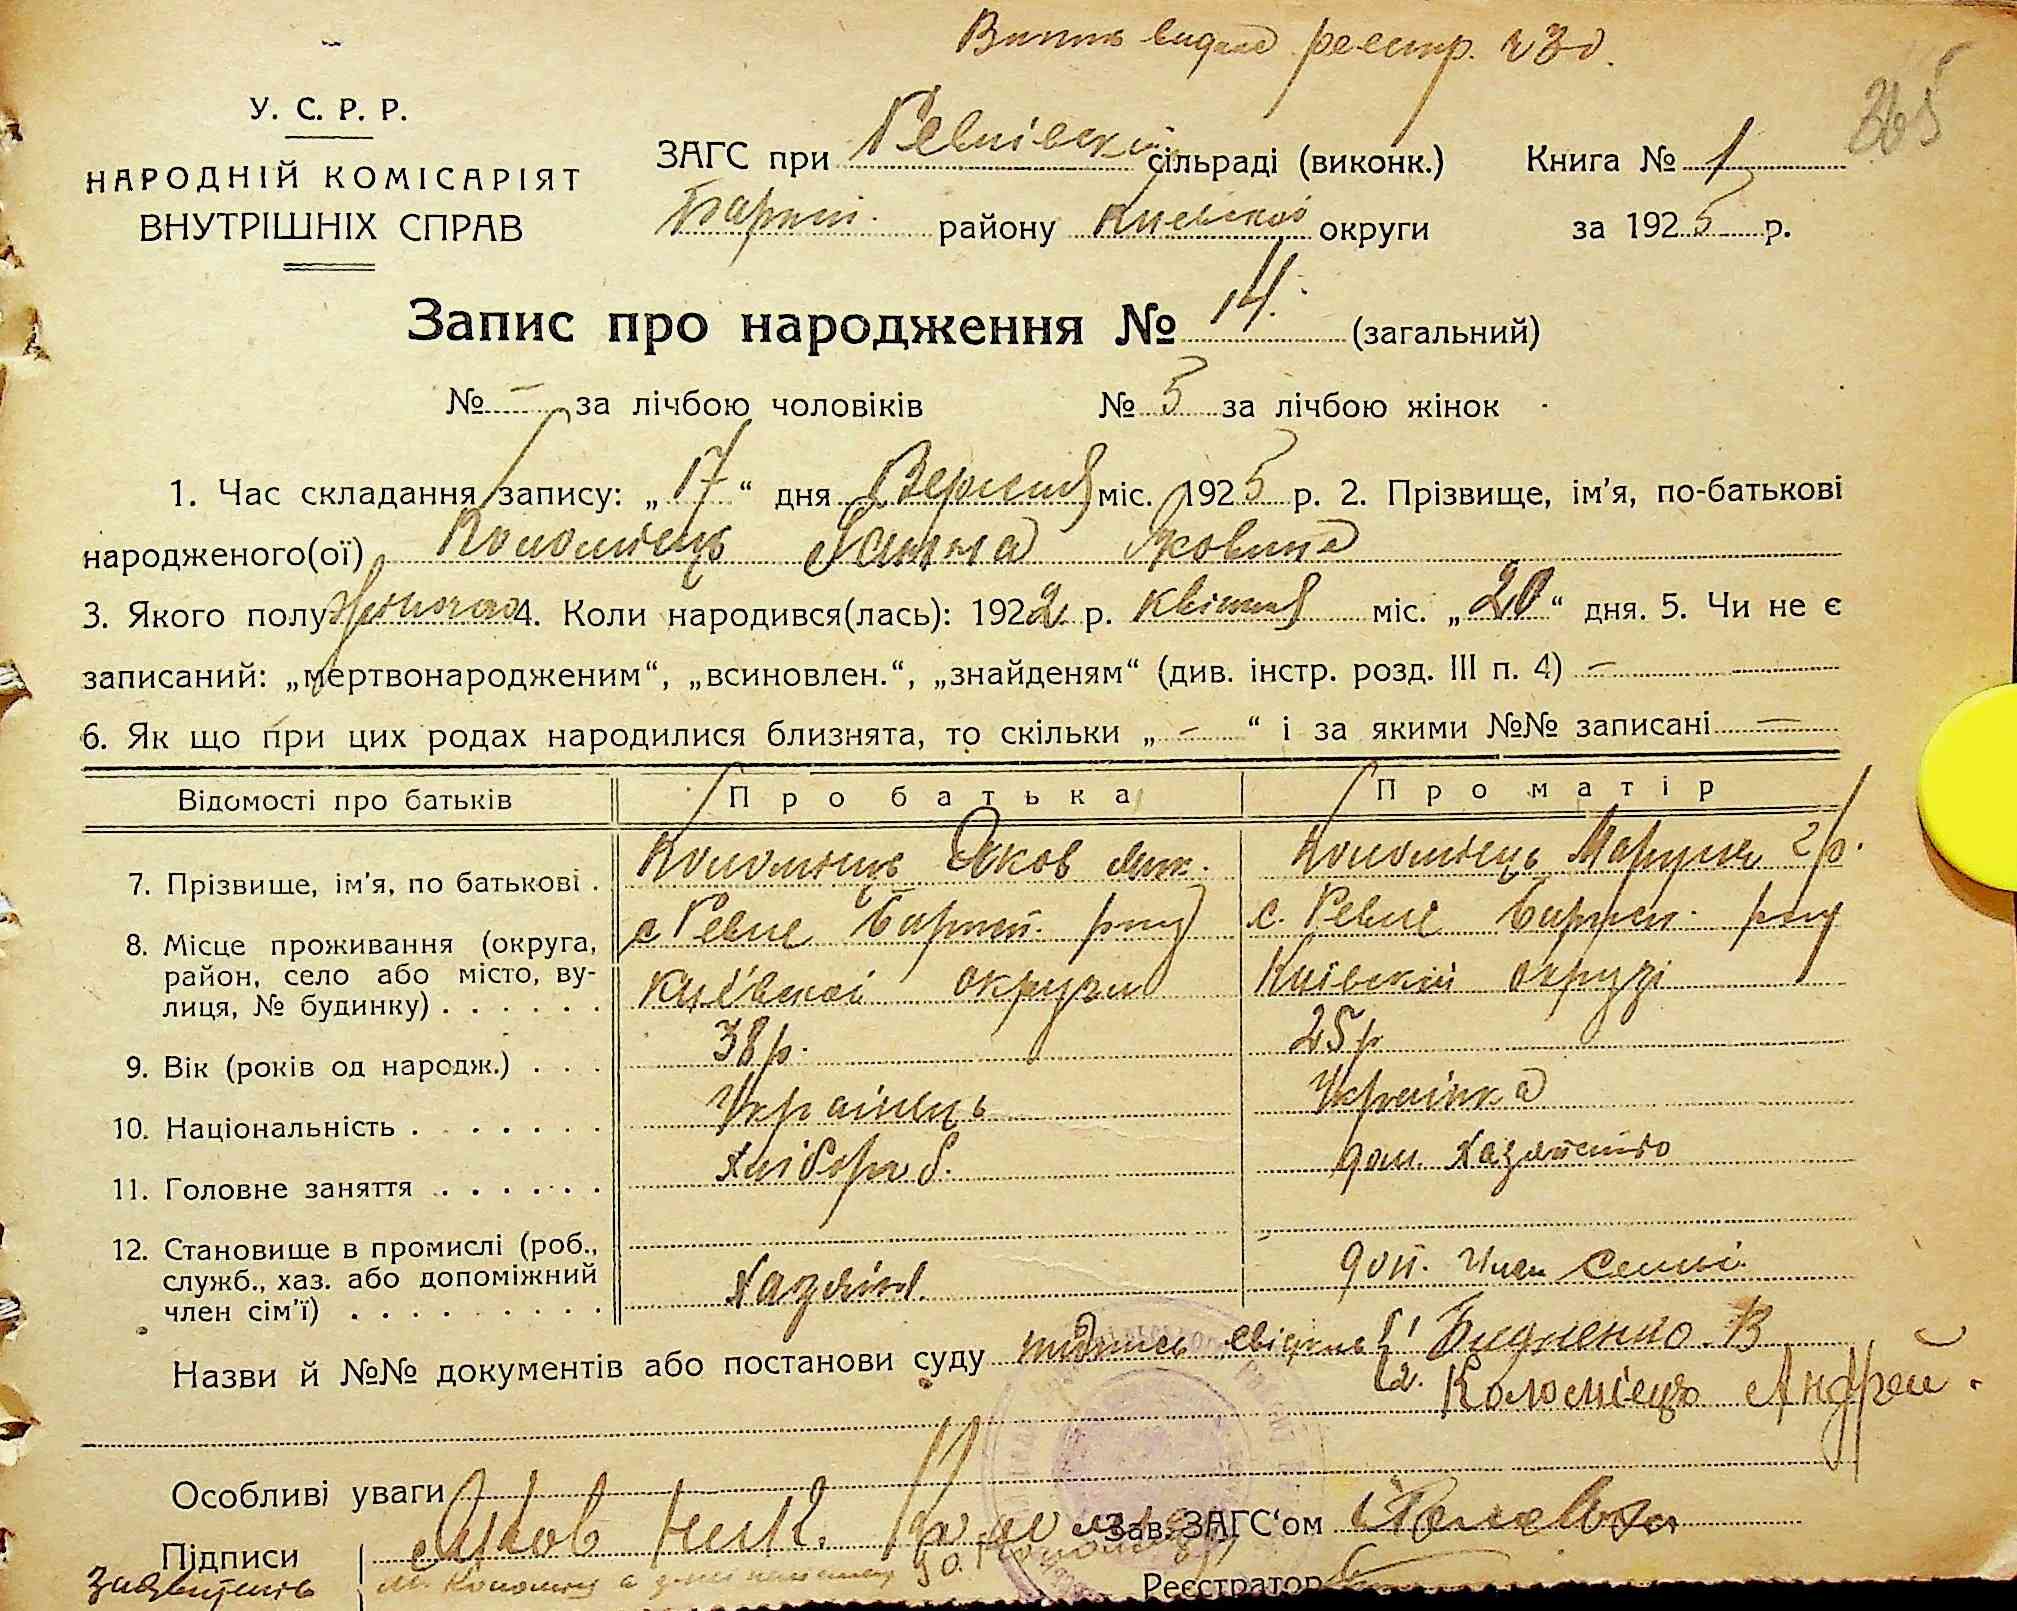 реєстр. 230.
365
У. С. Р. Р.
НАРОДНІЙ КОМІСАРІЯТ
ВНУТРІШНІХ СПРАВ
ЗАГС при Ревнівській сільраді (виконк.) Книга № 1
району Київської округи за 1925 р.
Запис про народження № 14. (загальний)
№ – за лічбою чоловіків № 5 за лічбою жінок
1. Час складання запису: „17“ дня Вересня міс. 1925 р. 2. Прізвище, ім'я, по-батькові
народженого(ої) Коломієць Ганна Яковина
3. Якого полу Жіночого 4. Коли народився(лась): 1922 р. квітня міс. „20“ дня. 5. Чи не є
записаний: „мертвонародженим“, „всиновлен.“, „знайденям“ (див. інстр. розд. III п. 4) –
6. Як що при цих родах народилися близнята, то скільки „–“ і за якими №№ записані –
Відомості про батьків Про батька Про матір
7. Прізвище, ім'я, по батькові . Коломієць Яков Ник. Коломієць Маруся Гр.
8. Місце проживання (округа, с Ревне Бариш. р-ну с. Ревне Барыш. р-ну
район, село або місто, ву-
лиця, № будинку) . . . . . . Київської округи Київській округі
9. Вік (років од народж.) . . . 38 р. 25 р
10. Національність . . . . . . . Українець Українка
11. Головне заняття . . . . . . Хлібороб. дом. Хазяйство
12. Становище в промислі (роб.,
служб., хаз. або допоміжний
член сім'ї) . . . . . . . . . Хазяїн. доп. член семьі.
Назви й №№ документів або постанови суду підпись свідків 1. Бидненко В
2. Коломієць Андрей.
Особливі уваги
Підписи Яков Ник. Зав. ЗАГС'ом
М. Коломієц Реєстратор